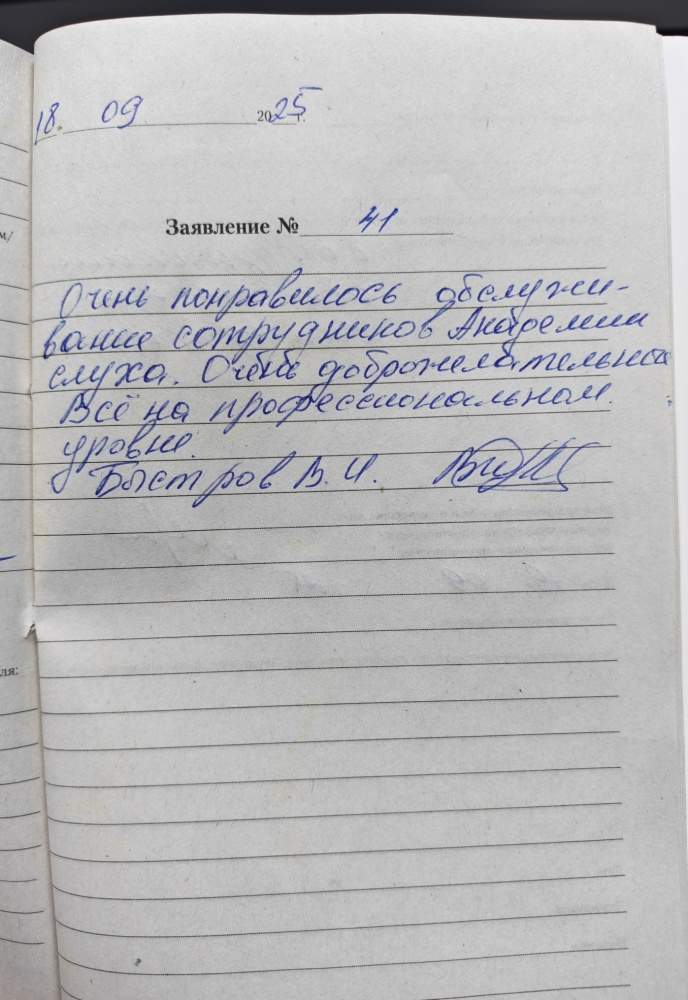 18. 09 2025 г.
Заявление № 41
Очень понравилось обслужи-
вание сотрудников Академии
слуха. Очень доброжелательные
Всё на профессиональном
уровне.
Быстров В. И.
м/
ля: